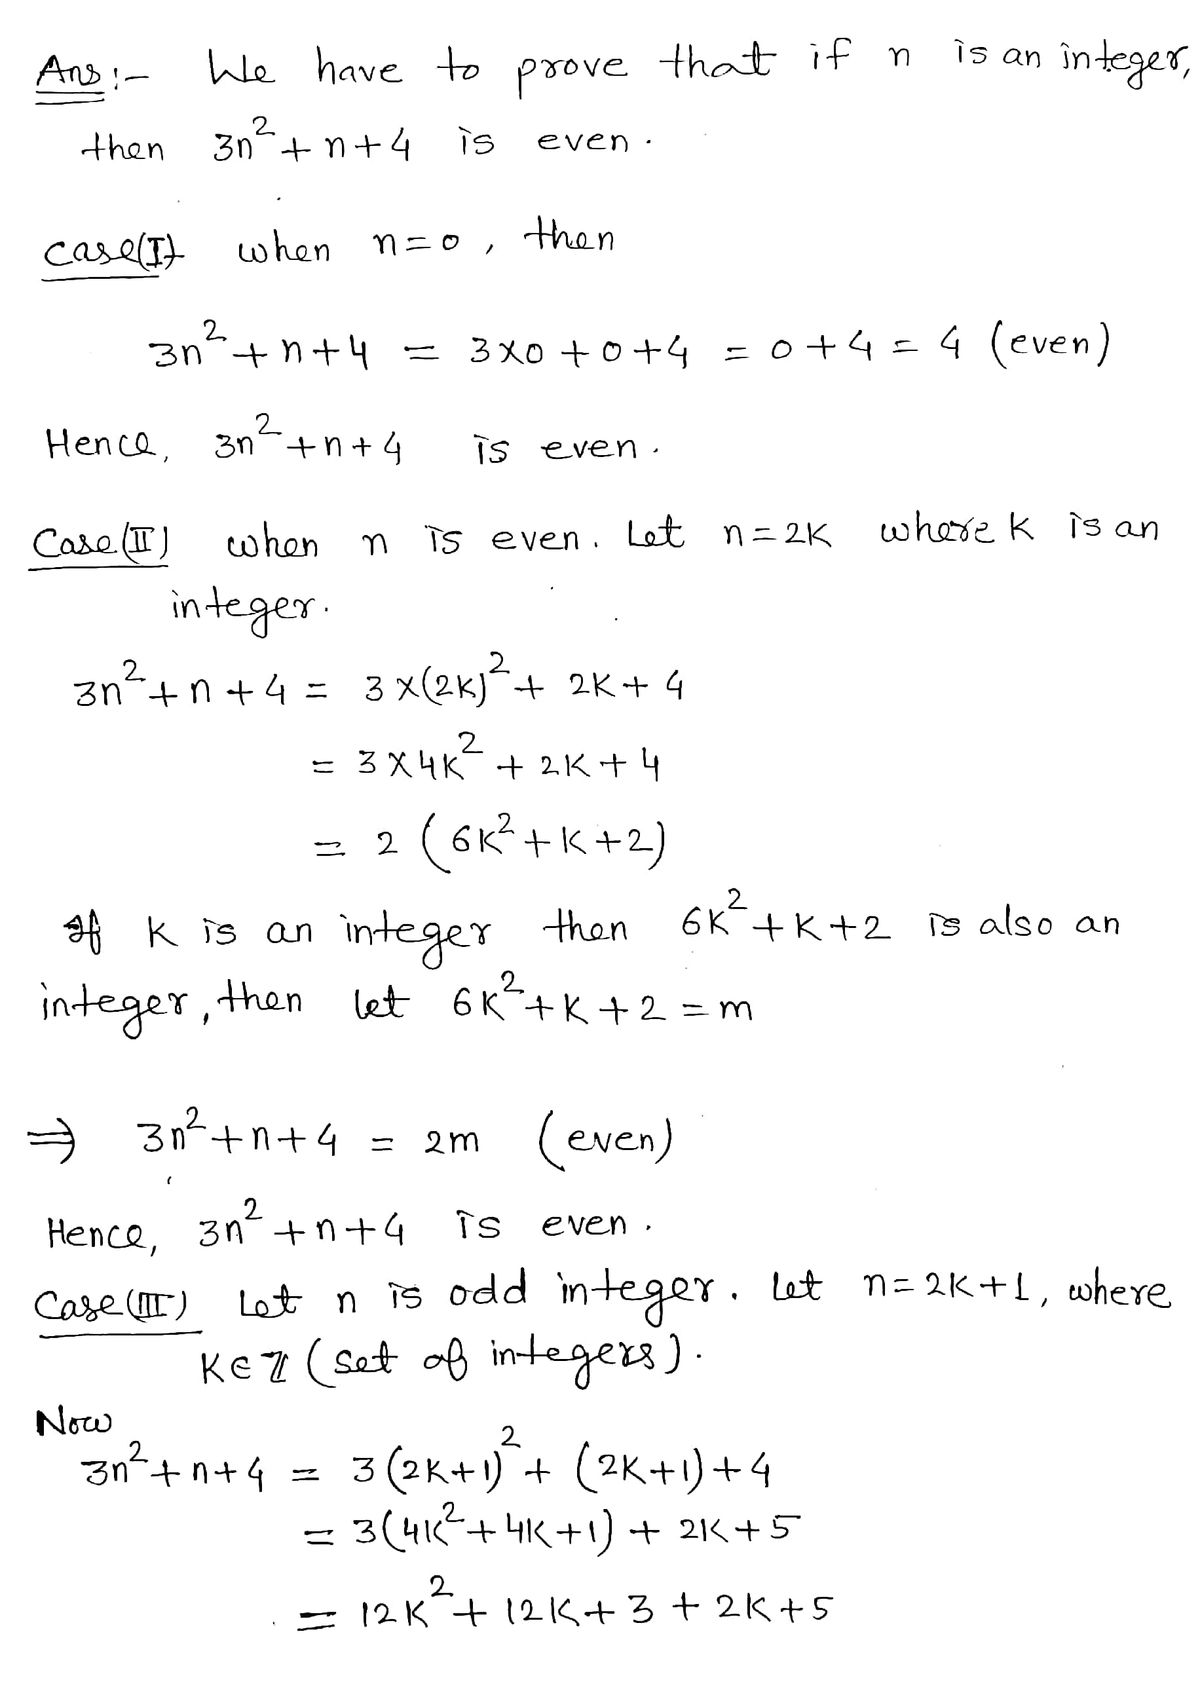 Ans:- We have to prove that if n is an integer,
then 3n²+n+4 is even.
Case(I) when n=0, then
3n²+n+4 = 3×0+0+4 = 0+4 = 4 (even)
Hence, 3n²+n+4 is even.
Case(II) when n is even. Let n=2K where k is an
integer.
3n²+n+4 = 3×(2K)²+ 2K+4
= 3×4K²+2K+4
= 2(6K²+K+2)
If K is an integer then 6K²+K+2 is also an
integer, then let 6K²+K+2=m
⇒ 3n²+n+4 = 2m (even)
Hence, 3n²+n+4 is even.
Case(III) Let n is odd integer. Let n=2K+1, where
K∈ℤ (set of integers).
Now
3n²+n+4 = 3(2K+1)²+(2K+1)+4
= 3(4K²+4K+1)+2K+5
= 12K²+12K+3+2K+5